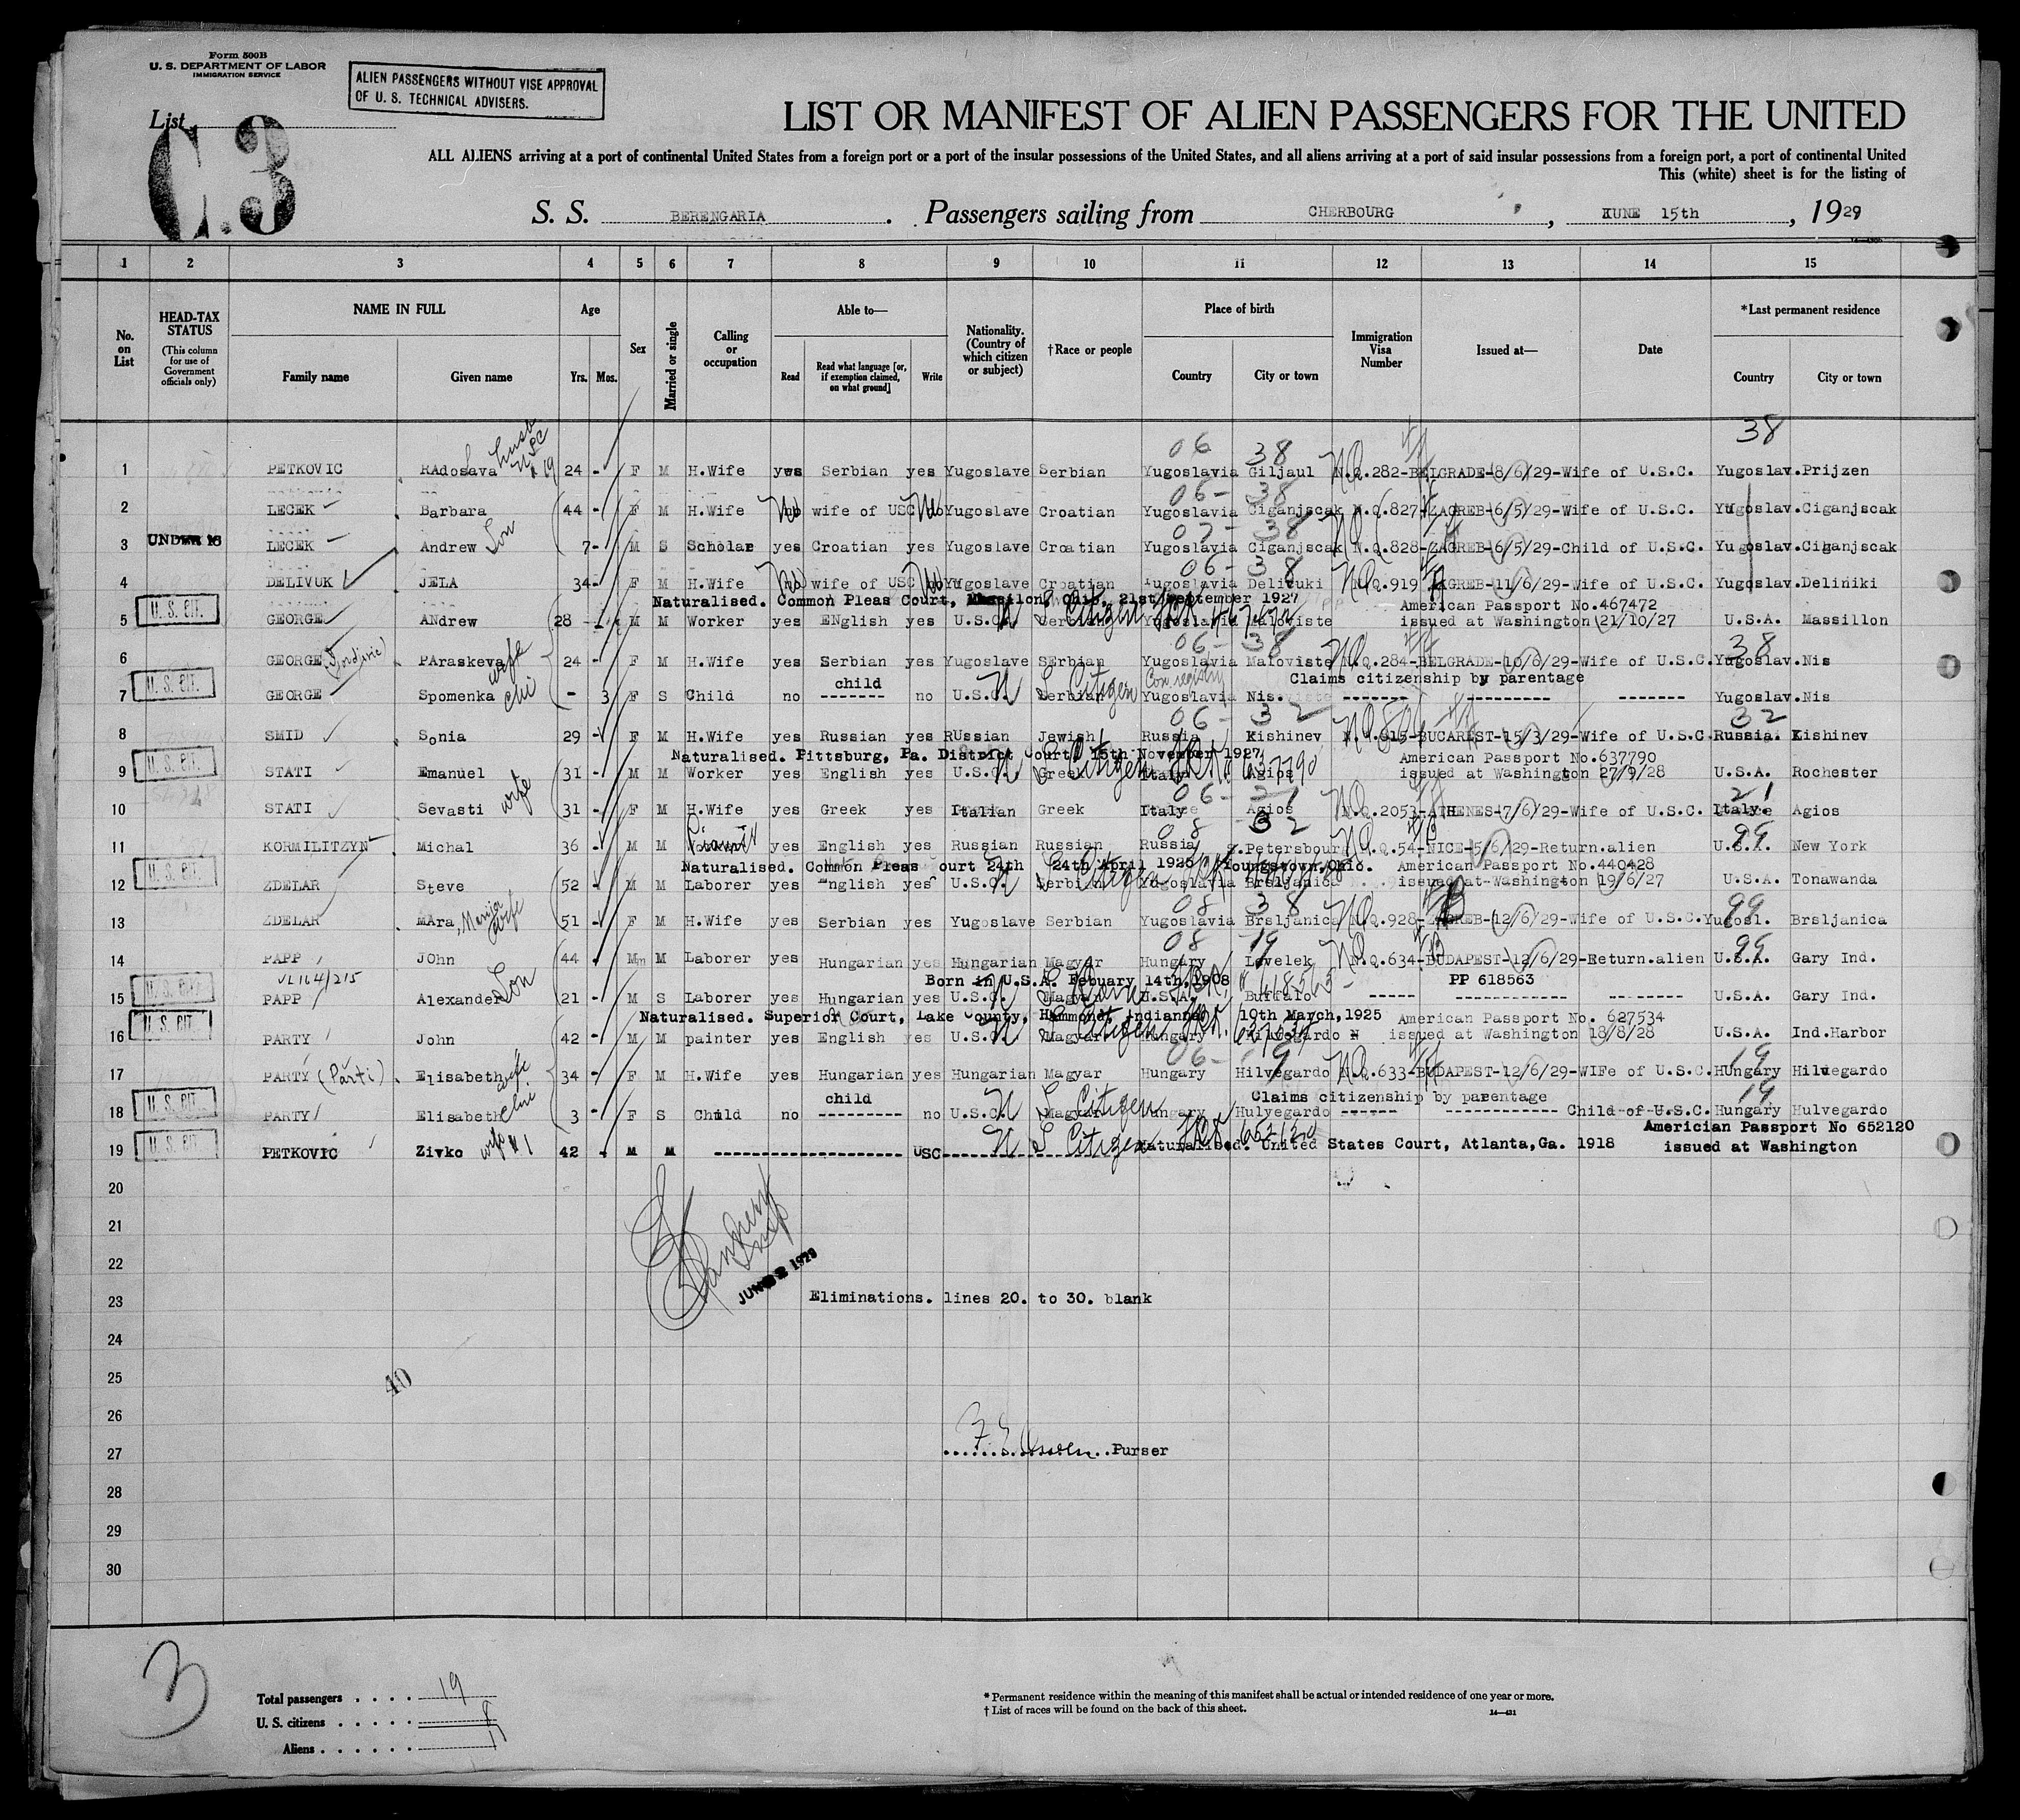 Form 500B
U. S. DEPARTMENT OF LABOR
IMMIGRATION SERVICE
ALIEN PASSENGERS WITHOUT VISE APPROVAL
OF U. S. TECHNICAL ADVISERS.
List
C.3
LIST OR MANIFEST OF ALIEN PASSENGERS FOR THE UNITED
ALL ALIENS arriving at a port of continental United States from a foreign port or a port of the insular possessions of the United States, and all aliens arriving at a port of said insular possessions from a foreign port, a port of continental United
This (white) sheet is for the listing of
S. S. BERENGARIA. Passengers sailing from CHERBOURG, KUNE 15th, 1929
1 2 3 4 5 6 7 8 9 10 11 12 13 14 15
No. on List
HEAD-TAX STATUS
(This column for use of Government officials only)
NAME IN FULL
Family name Given name
Age
Yrs. Mos.
Sex
Married or single
Calling or occupation
Able to—
Read
Read what language [or, if exemption claimed, on what ground]
Write
Nationality. (Country of which citizen or subject)
†Race or people
Place of birth
Country City or town
Immigration Visa Number
Issued at—
Date
*Last permanent residence
Country City or town
38
06 38
1 PETKOVIC RAdosava 24 - F M H.Wife yes Serbian yes Yugoslave Serbian Yugoslavia Giljaul N.Q.282-BELGRADE-8/6/29-Wife of U.S.C. Yugoslav.Prijzen
06- 38
2 LECEK Barbara 44 - F M H.Wife No wife of USC No Yugoslave Croatian Yugoslavia Ciganjscak N.Q.827-ZAGREB-6/5/29-Wife of U.S.C. Yugoslav.Ciganjscak
07- 38
3 UNDER 16 LECEK Andrew Son 7- M S Scholar yes Croatian yes Yugoslave Croatian Yugoslavia Ciganjscak N.Q.828-ZAGREB-6/5/29-Child of U.S.C. Yugoslav.Ciganjscak
06- 38
4 DELIVUK JELA 34- F M H.Wife No wife of USC No Yugoslave Croatian Yugoslavia Delivuki N.Q.919 ZAGREB-11/6/29-Wife of U.S.C. Yugoslav.Deliniki
Naturalised. Common Pleas Court, Ohio, 21st September 1927 American Passport No.467472
5 U. S. CIT. GEORGE ANdrew 28 - M M Worker yes ENglish yes U.S.C. Citizen issued at Washington 21/10/27 U.S.A. Massillon
06- 38 38
6 GEORGE PAraskeva wife 24 - F M H.Wife yes Serbian yes Yugoslave SErbian Yugoslavia Maloviste N.Q.284-BELGRADE-10/6/29-Wife of U.S.C.Yugoslav.Nis
child Claims citizenship by parentage
7 U. S. CIT. GEORGE Spomenka - 3 F S Child no ------- no U.S.C. Serbian Citizen Yugoslavia Nis. ------- --------- ------- Yugoslav.Nis
06- 32 32
8 SMID Sonia 29 - F M H.Wife yes Russian yes RUssian Jewish Russia Kishinev BUCAREST-15/3/29-Wife of U.S.C.Russia. Kishinev
Naturalised. Pittsburg, Pa. District Court 15th November 1927 American Passport No.637790
9 U. S. CIT. STATI Emanuel 31 - M M Worker yes English yes U.S.C. Greek Citizen Agios issued at Washington 27/9/28 U.S.A. Rochester
06- 21 21
10 STATI Sevasti wife 31 - F M H.Wife yes Greek yes Italian Greek Italy Agios N.Q.2053-ATHENES-7/6/29-Wife of U.S.C. Italy. Agios
08 32 99
11 KORMILITZYN Michal 36 - M M yes English yes Russian Russian Russia S.Petersbourg N.Q.54-NICE-5/6/29-Return.alien U.S.A. New York
Naturalised. Common Pleas Court 24th 24th April 1925 Youngstown,Ohio. American Passport No.440428
12 U. S. CIT. ZDELAR Steve 52 - M M Laborer yes English yes U.S.C. Serbian Citizen Yugoslavia Brsljanica issued at Washington 19/6/27 U.S.A. Tonawanda
08 38 99
13 ZDELAR MAra, Marija wife 51 - F M H.Wife yes Serbian yes Yugoslave Serbian Yugoslavia Brsljanica N.Q.928-ZAGREB-12/6/29-Wife of U.S.C.Yugosl. Brsljanica
08 19 99
14 PAPP JOhn 44 - M M Laborer yes Hungarian yes Hungarian Magyar Hungary Levelek N.Q.634-BUDAPEST-12/6/29-Return.alien U.S.A. Gary Ind.
Born in U.S.A. Febuary 14th,1908 PP 618563
15 U. S. CIT. PAPP Alexander Son 21 - M S Laborer yes Hungarian yes U.S.C. Magyar U.S.A. Buffalo ----- ----------- -------- U.S.A. Gary Ind.
Naturalised. Superior Court, Lake County, Hammond, Indianna 10th March,1925 American Passport No. 627534
16 U. S. CIT. PARTY John 42 - M M painter yes English yes U.S.C. Magyar Citizen Hungary Hilvegardo issued at Washington 18/8/28 U.S.A. Ind.Harbor
06- 19 19
17 PARTY (Parti) Elisabeth wife 34 - F M H.Wife yes Hungarian yes Hungarian Magyar Hungary Hilvegardo N.Q.633-BUDAPEST-12/6/29-WIFe of U.S.C.HUngary Hilvegardo
child Claims citizenship by parentage 19
18 U. S. CIT. PARTY Elisabeth 3 - F S Child no --------- no U.S.C. Magyar Citizen Hungary Hulvegardo ------ ------------ Child of U.S.C. Hungary Hulvegardo
Americian Passport No 652120
19 U. S. CIT. PETKOVIC Zivko 42 - M M -------------------- USC Citizen Naturalised. United States Court, Atlanta,Ga. 1918 issued at Washington
20
21
22
1929
23 Eliminations. lines 20. to 30. blank
24
25
40
26
27 Purser
28
29
30
3
Total passengers . . . . 19
U. S. citizens . . . . . 8
Aliens . . . . . . 11
* Permanent residence within the meaning of this manifest shall be actual or intended residence of one year or more.
† List of races will be found on the back of this sheet.
14—421